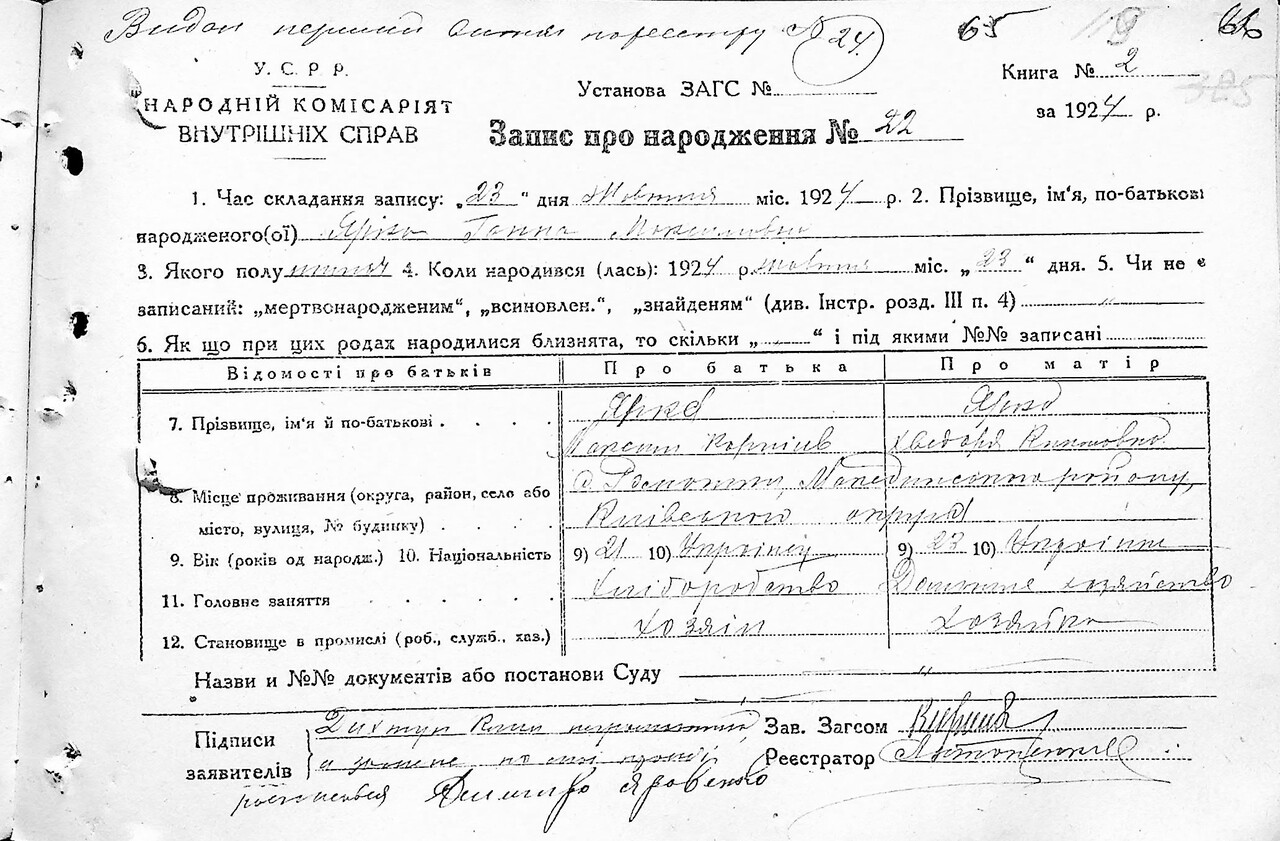 Видан перший витяг по реєстру № 24.
65
66
У. С. Р. Р.
НАРОДНІЙ КОМІСАРІЯТ
ВНУТРІШНІХ СПРАВ
Установа ЗАГС №
Книга № 2
за 1924 р.
Запис про народження № 22
1. Час складання запису: „23" дня Жовтня міс. 1924 р. 2. Прізвище, ім'я, по-батькові
народженого(ої) Ярко Ганна Максимовна
3. Якого полу жіноч 4. Коли народився (лась): 1924 р. жовтня міс. „23" дня. 5. Чи не є
записаний: „мертвонародженим", „всиновлен.", „знайденям" (див. Інстр. розд. III п. 4) "
6. Як що при цих родах народилися близнята, то скільки „ — " і під якими №№ записані
Відомості про батьків Про батька Про матір
7. Прізвище, ім'я й по-батькові Ярко Ярко
Максим Корніїв Хведора
8. Місце проживання (округа, район, село або с. Макединського району,
місто, вулиця, № будинку) Київської округи
9. Вік (років од народж.) 10. Національність 9) 21 10) Українец 9) 23 10) Українка
11. Головне заняття Хліборобство Домашнє хозяйство
12. Становище в промислі (роб., служб., хаз.) хозяїн хозяйка
Назви и №№ документів або постанови Суду "
Підписи
заявителів
Зав. Загсом
Реєстратор
Дмитро Яровенко